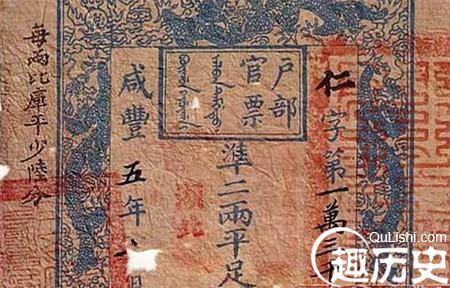 仁字第一萬三
户部
官票
準二兩平足
湖北
咸豐五年
每兩比庫平少陸分
QuLishi.com
趣历史